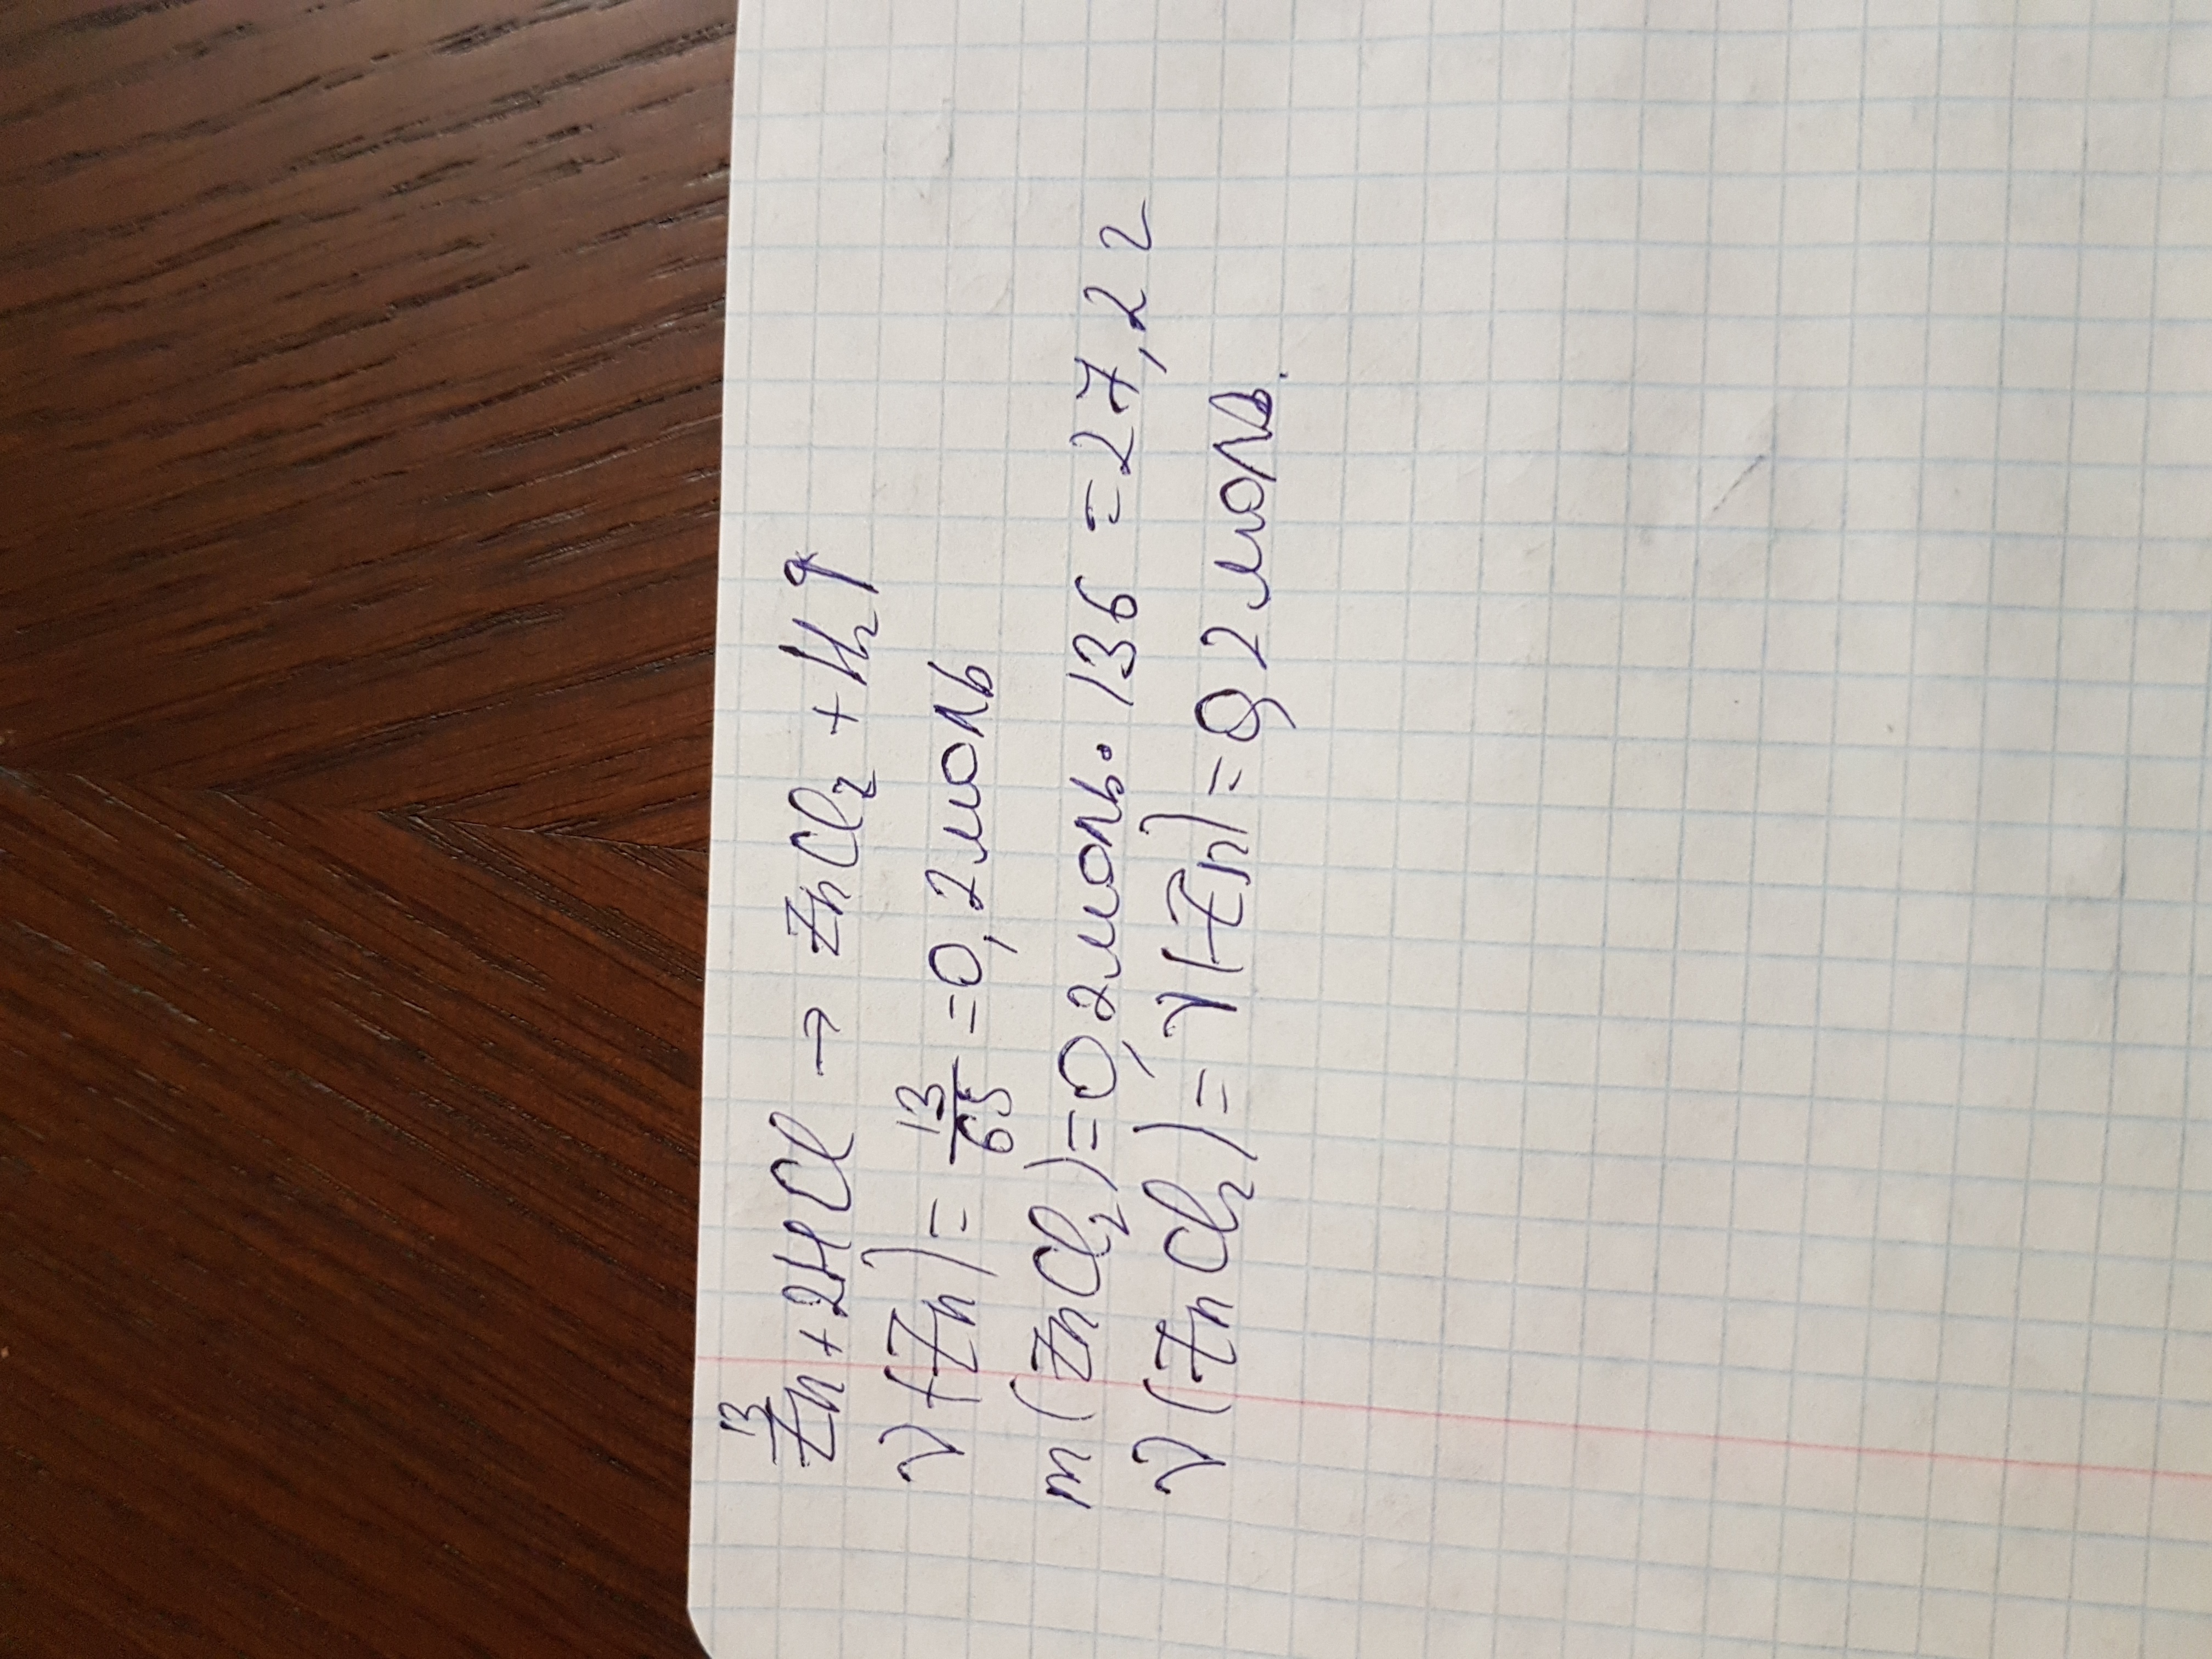 13
Zn + 2HCl → ZnCl₂ + H₂↑
ν(Zn) = 13/65 = 0,2 моль
m(ZnCl₂) = 0,2 моль · 136 = 27,2 г
ν(ZnCl₂) = ν(Zn) = 0,2 моль.